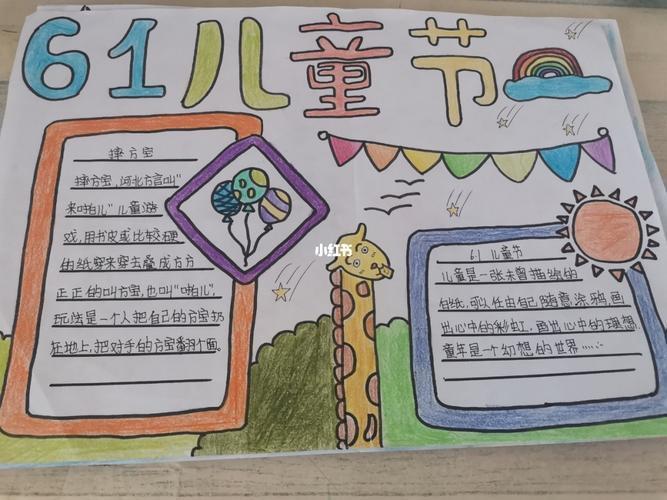 61儿童节
摔方宝
摔方宝,河北方言叫"
来啪儿"儿童游
戏,用书皮或比较硬
的纸穿来穿去叠成方方
正正的叫方宝,也叫"啪儿",
玩法是一个人把自己的方宝扔
在地上,把对手的方宝翻个面。
小红书
61 儿童节
儿童是一张未曾描绘的
白纸,可以任由自己,随意涂鸦,画
出心中的彩虹,画出心中的理想,
童年是个幻想的世界……